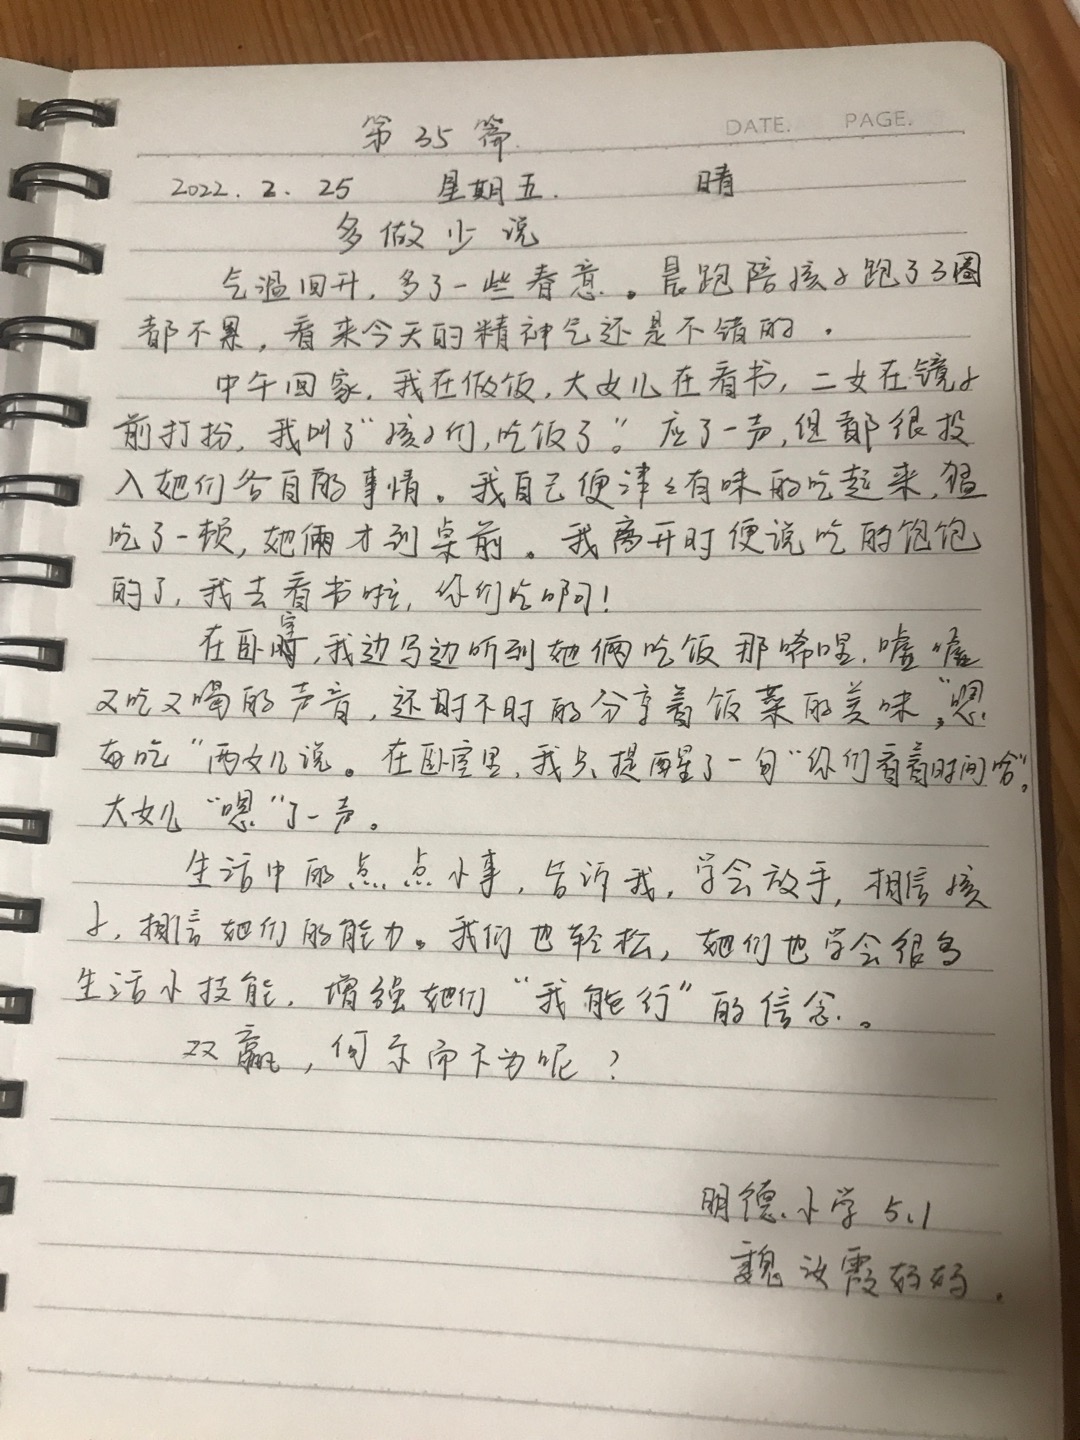 DATE. PAGE.
第35篇.
2022.2.25 星期五. 晴
多做少说
气温回升,多了一些春意。晨跑陪孩子跑了3圈
都不累,看来今天的精神气还是不错的.
中午回家,我在做饭,大女儿在看书,二女在镜子
前打扮,我叫了“孩子们,吃饭了”。应了一声,但都很投
入她们各自的事情。我自己便津々有味的吃起来,猛
吃了一顿,她俩才到桌前。我离开时便说吃的饱饱
的了,我去看书啦,你们吃啊!
在卧室,我边写边听到她俩吃饭那唏哩,嘘嘘
又吃又喝的声音,还时不时的分享着饭菜的美味,“嗯
好吃”两女儿说。在卧室里,我只提醒了一句“你们看着时间哈”。
大女儿“嗯”了一声。
生活中的点点小事,告诉我,学会放手,相信孩
子,相信她们的能力。我们也轻松,她们也学会很多
生活小技能,增强她们“我能行”的信念。
双赢,何乐而不为呢?
明德小学5.1
魏汝霞妈妈.